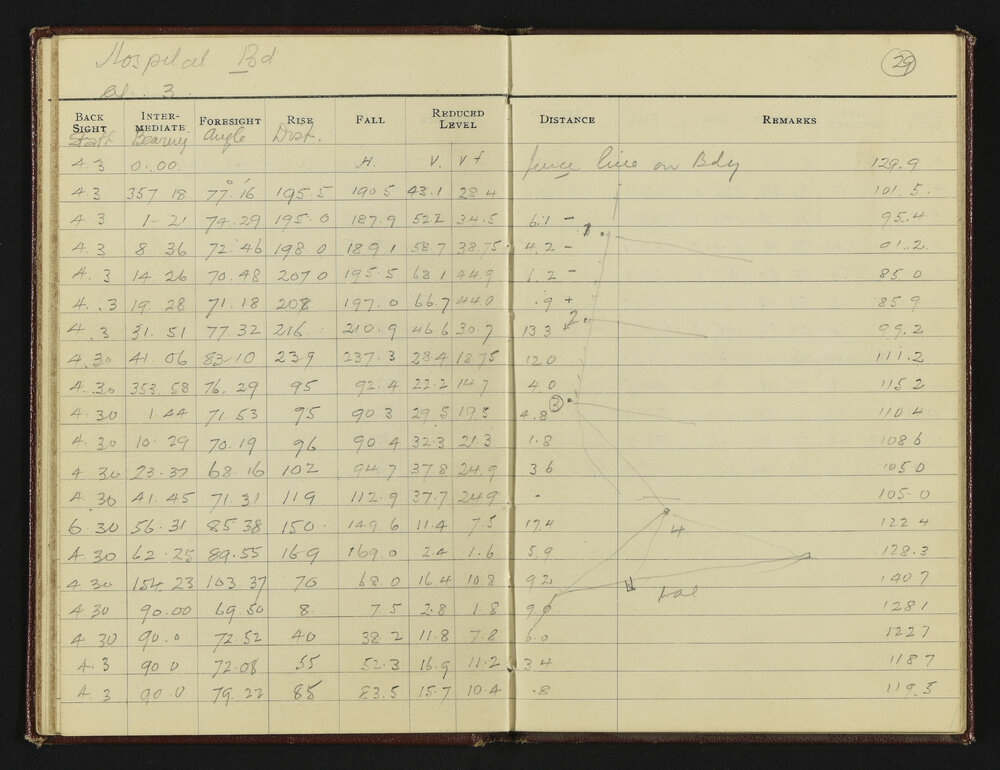 Hospital Bd
29
3.
BACK SIGHT INTER-MEDIATE FORESIGHT RISE FALL REDUCED LEVEL DISTANCE REMARKS
Bearing Angle Dist.
4.3 0.00. H. V. Vf. fence line on Bdy 129.9
4.3 357 18 77.16 195.5 190 5 43.1 28 4 101.5.
4.3 1-21 74.29 195.0 187.9 52.2 34.5 6.1 - 95.4
4.3 8.36 72.46 198.0 189.1 58.7 38.75 4.2 - 91.2
4.3 14.26 70.48 207.0 195.5 68.1 44.9 6.2 - 85.0
4.3 19 28 71.18 208 197.0 66.7 44.0 .9 + 85 9
4.3 31.51 77.32 216. 210.9 46.6 30.7 13.3 + 99.2
4.30 41.06 83.10 239 237.3 28.4 18.75 12.0 111.2
4.30 353.58 76.29 95 92.4 22.2 14.7 4.0 115.2
4.30 1.44 71.53 95 90 3 29.5 19.5 4.8 110 4
4.30 10.29 70.19 96 90.4 32.3 21.3 1.8 108 6
4.30 23.37 68.16 102 94.7 37.8 24.9 3 6 105 0
4.30 41.45 71.31 119 112.9 37.7 24 9 - 105.0
6 30 56.31 85 38 150. 149 6 11.4 7.5 17.4 122 4
4.30 62.25 89.55 169 169.0 24 1.6 5.9 128.3
4 30 154.23 103.37 70 68.0 16.4 10.8 9 2 140.7
4 30 90.00 69.50 8. 7.5 2.8 1 8 9.0 128 1
4 30 90.0 72.52 40 38.2 11.8 7.8 122 7
4.3 90 0 72.08 55 52.3 16.9 11.2 3 4 118 7
4.3 90.0 79.22 85 83.5 15.7 10.4 .8 119.5
1
2
3
4